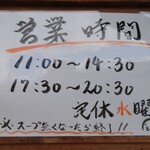 営業時間
11:00〜14:30
17:30〜20:30
定休水曜日
※スープ無くなったら終了!!